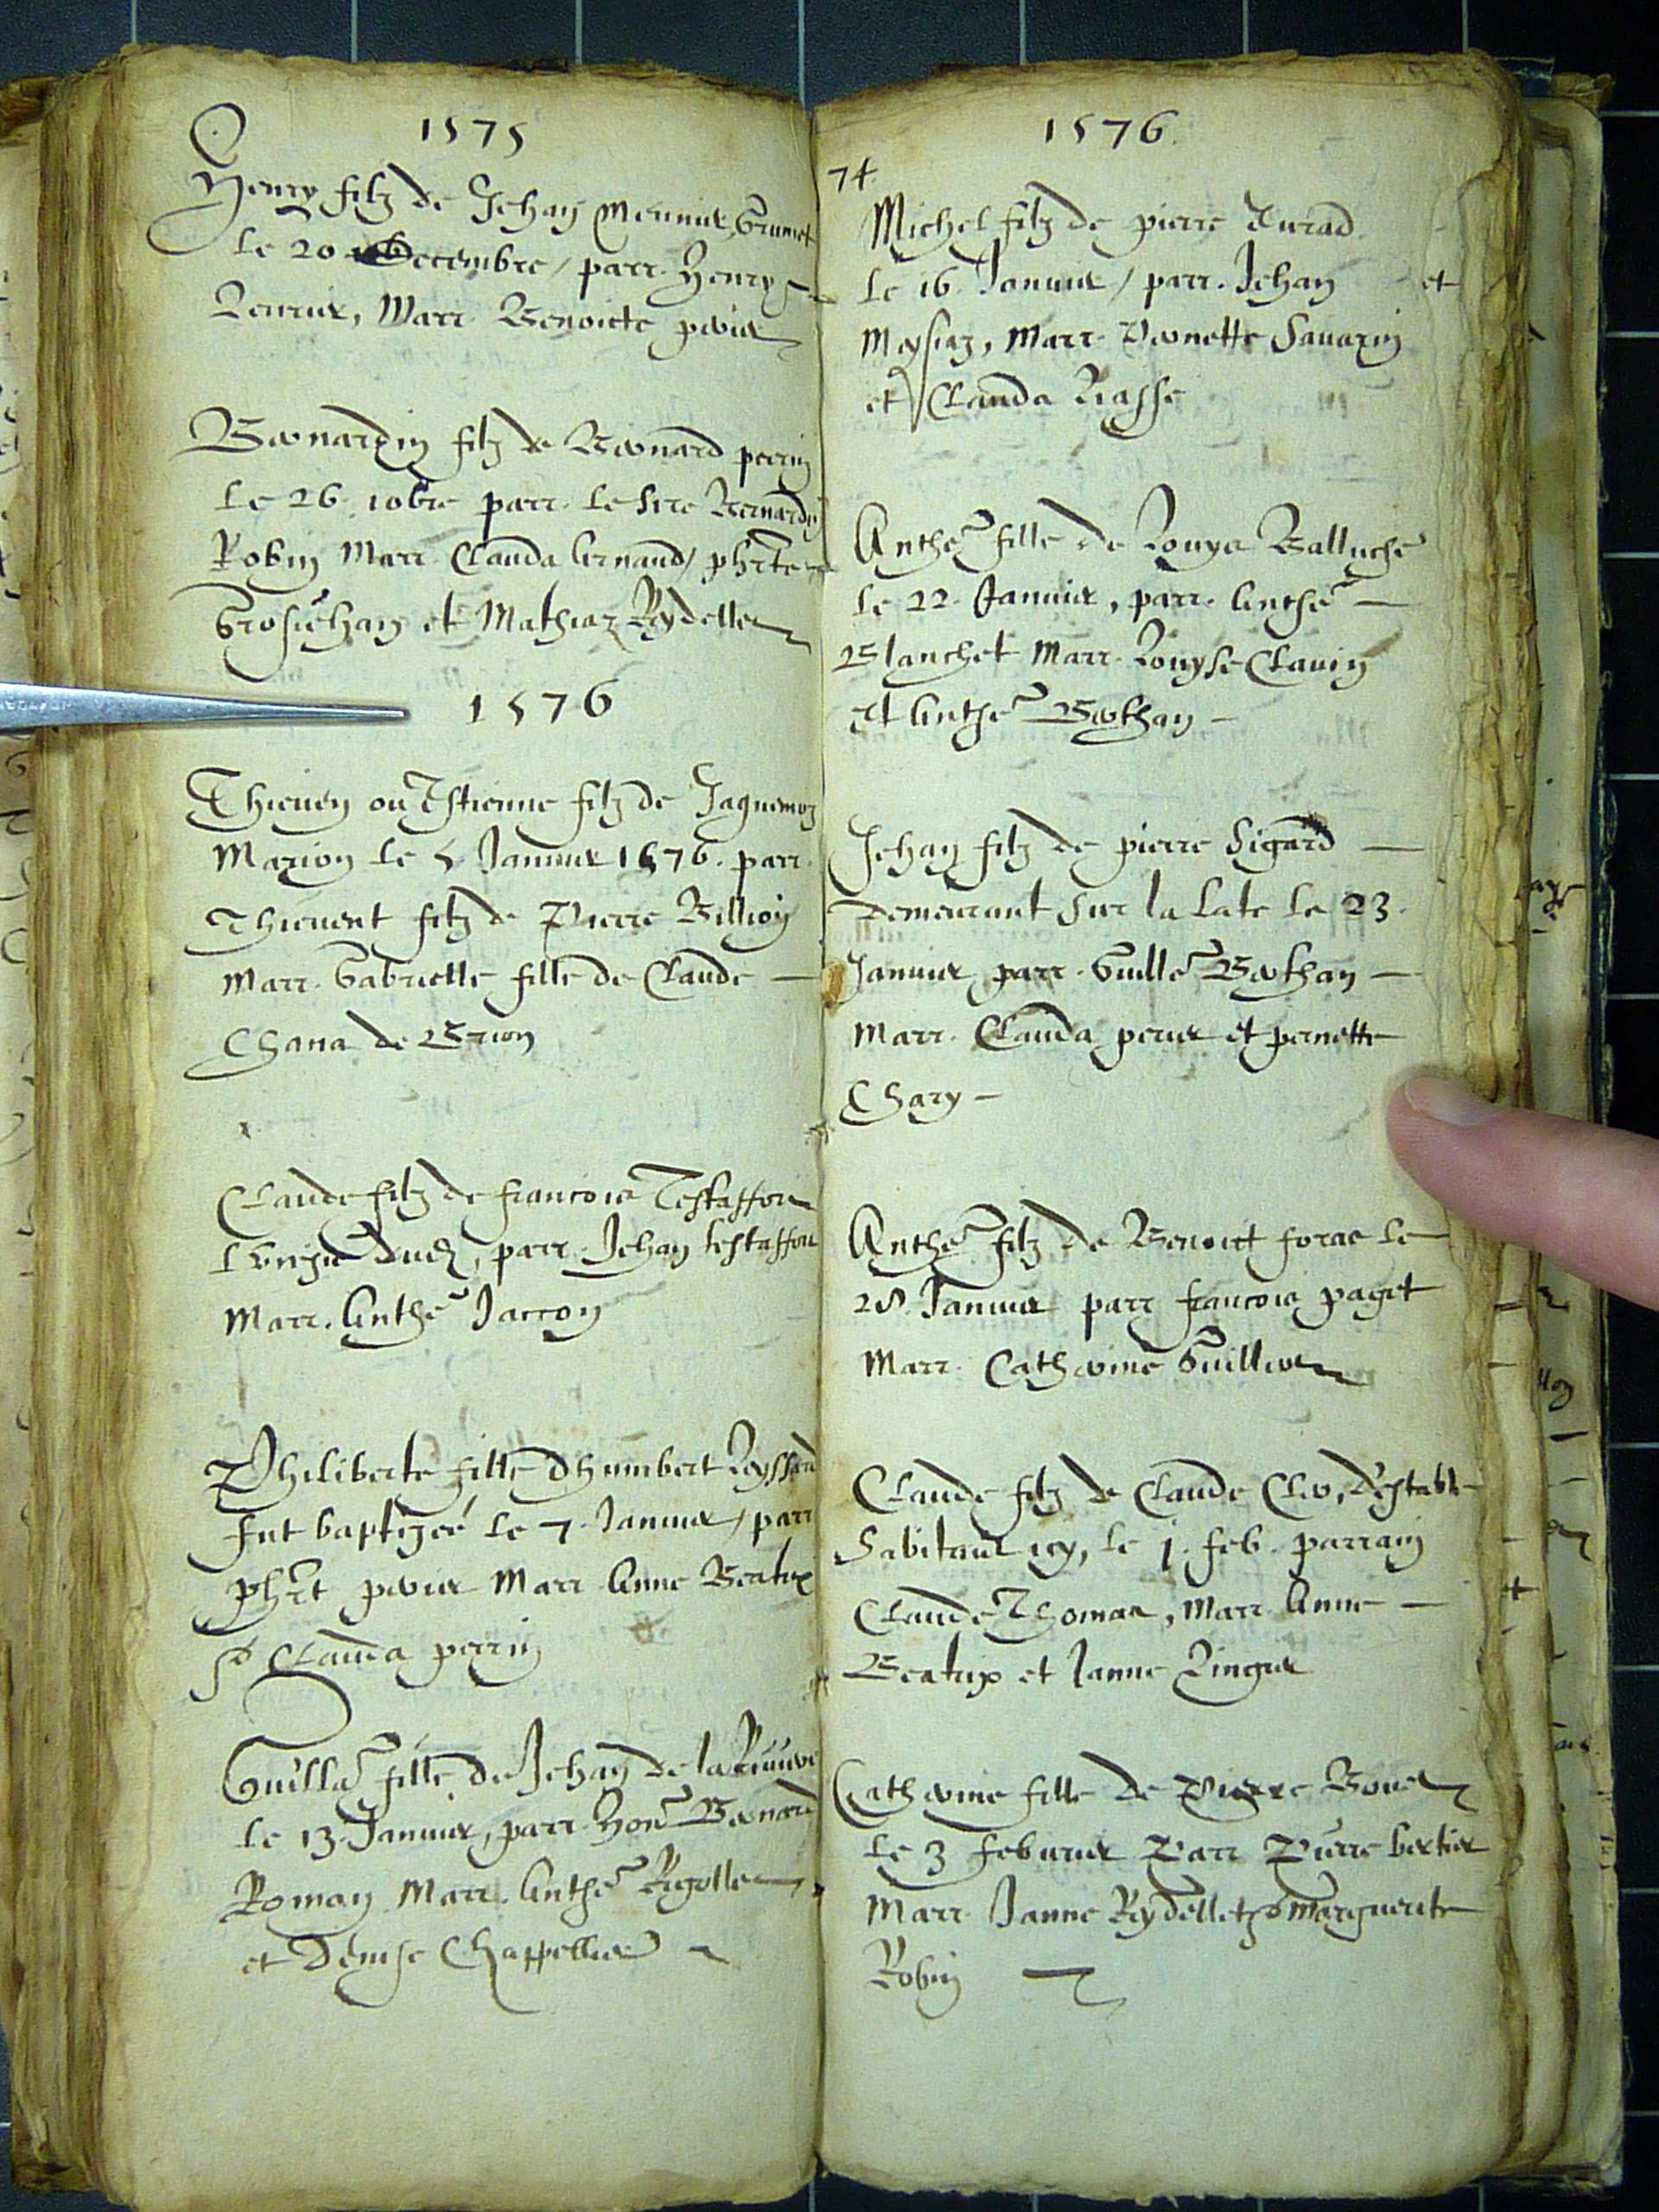 1575
Henry filz de Jehan Meunier, Grumet
le 20 Decembre / parr. Henry
Marr. Benoicte perier
Bernardin filz de Bernard perrin
le 26. 10bre parr. le Sire Bernardin
Robin Marr. Clauda Arnaud, phrte
Grosjehan et Mathiaz Reydellet
1576
Thieven ou Estienne filz de Jaquemoz
Marion le 5 Janvier 1576. parr.
Thievent filz de Pierre Billion
Marr. Gabrielle fille de Claude
Chana de Brion
Claude filz de francois Testaffort
parr. Jehan testaffort
Marr. Anthe Jarcon
Philiberte fille dhumbert Reyssard
fut baptizee le 7. Janvier / parr
phrt perier Marr Anne Beatrix
Clauda perrin
Guilla fille de Jehan de la
le 13. Janvier, parr. hon Bernard
Roman Marr. Anthe Rigollet
et Denise Chappellier
1576
74.
Michel filz de pierre Jurad
le 16. Janvier / parr. Jehan et
Meysiaz, Marr. Pernette Savarin
et Clauda Rasse
Anthe fille de Louys Balluche
le 22. Janvier, parr. Anthe
Blanchet Marr. Louyse Clavin
et Anthe Berthan
Jehan filz de pierre Sigard
demeurant sur la Late le 23.
Janvier parr. Guille Berthan
Marr. Clauda perier et pernette
Chary
Anthe filz de Benoict foras le
28. Janvier parr francois paget
Marr. Catherine Guillier
Claude filz de Claude Cler, destable
habitant icy, le 1. feb. parrain
Claude Thomas, Marr. Anne
Beatrix et Janne Lingier
Catherine fille de Pierre Bones
le 3 feburier Parr Pierre bertier
Marr. Janne Reydellet Marguerite
Robin